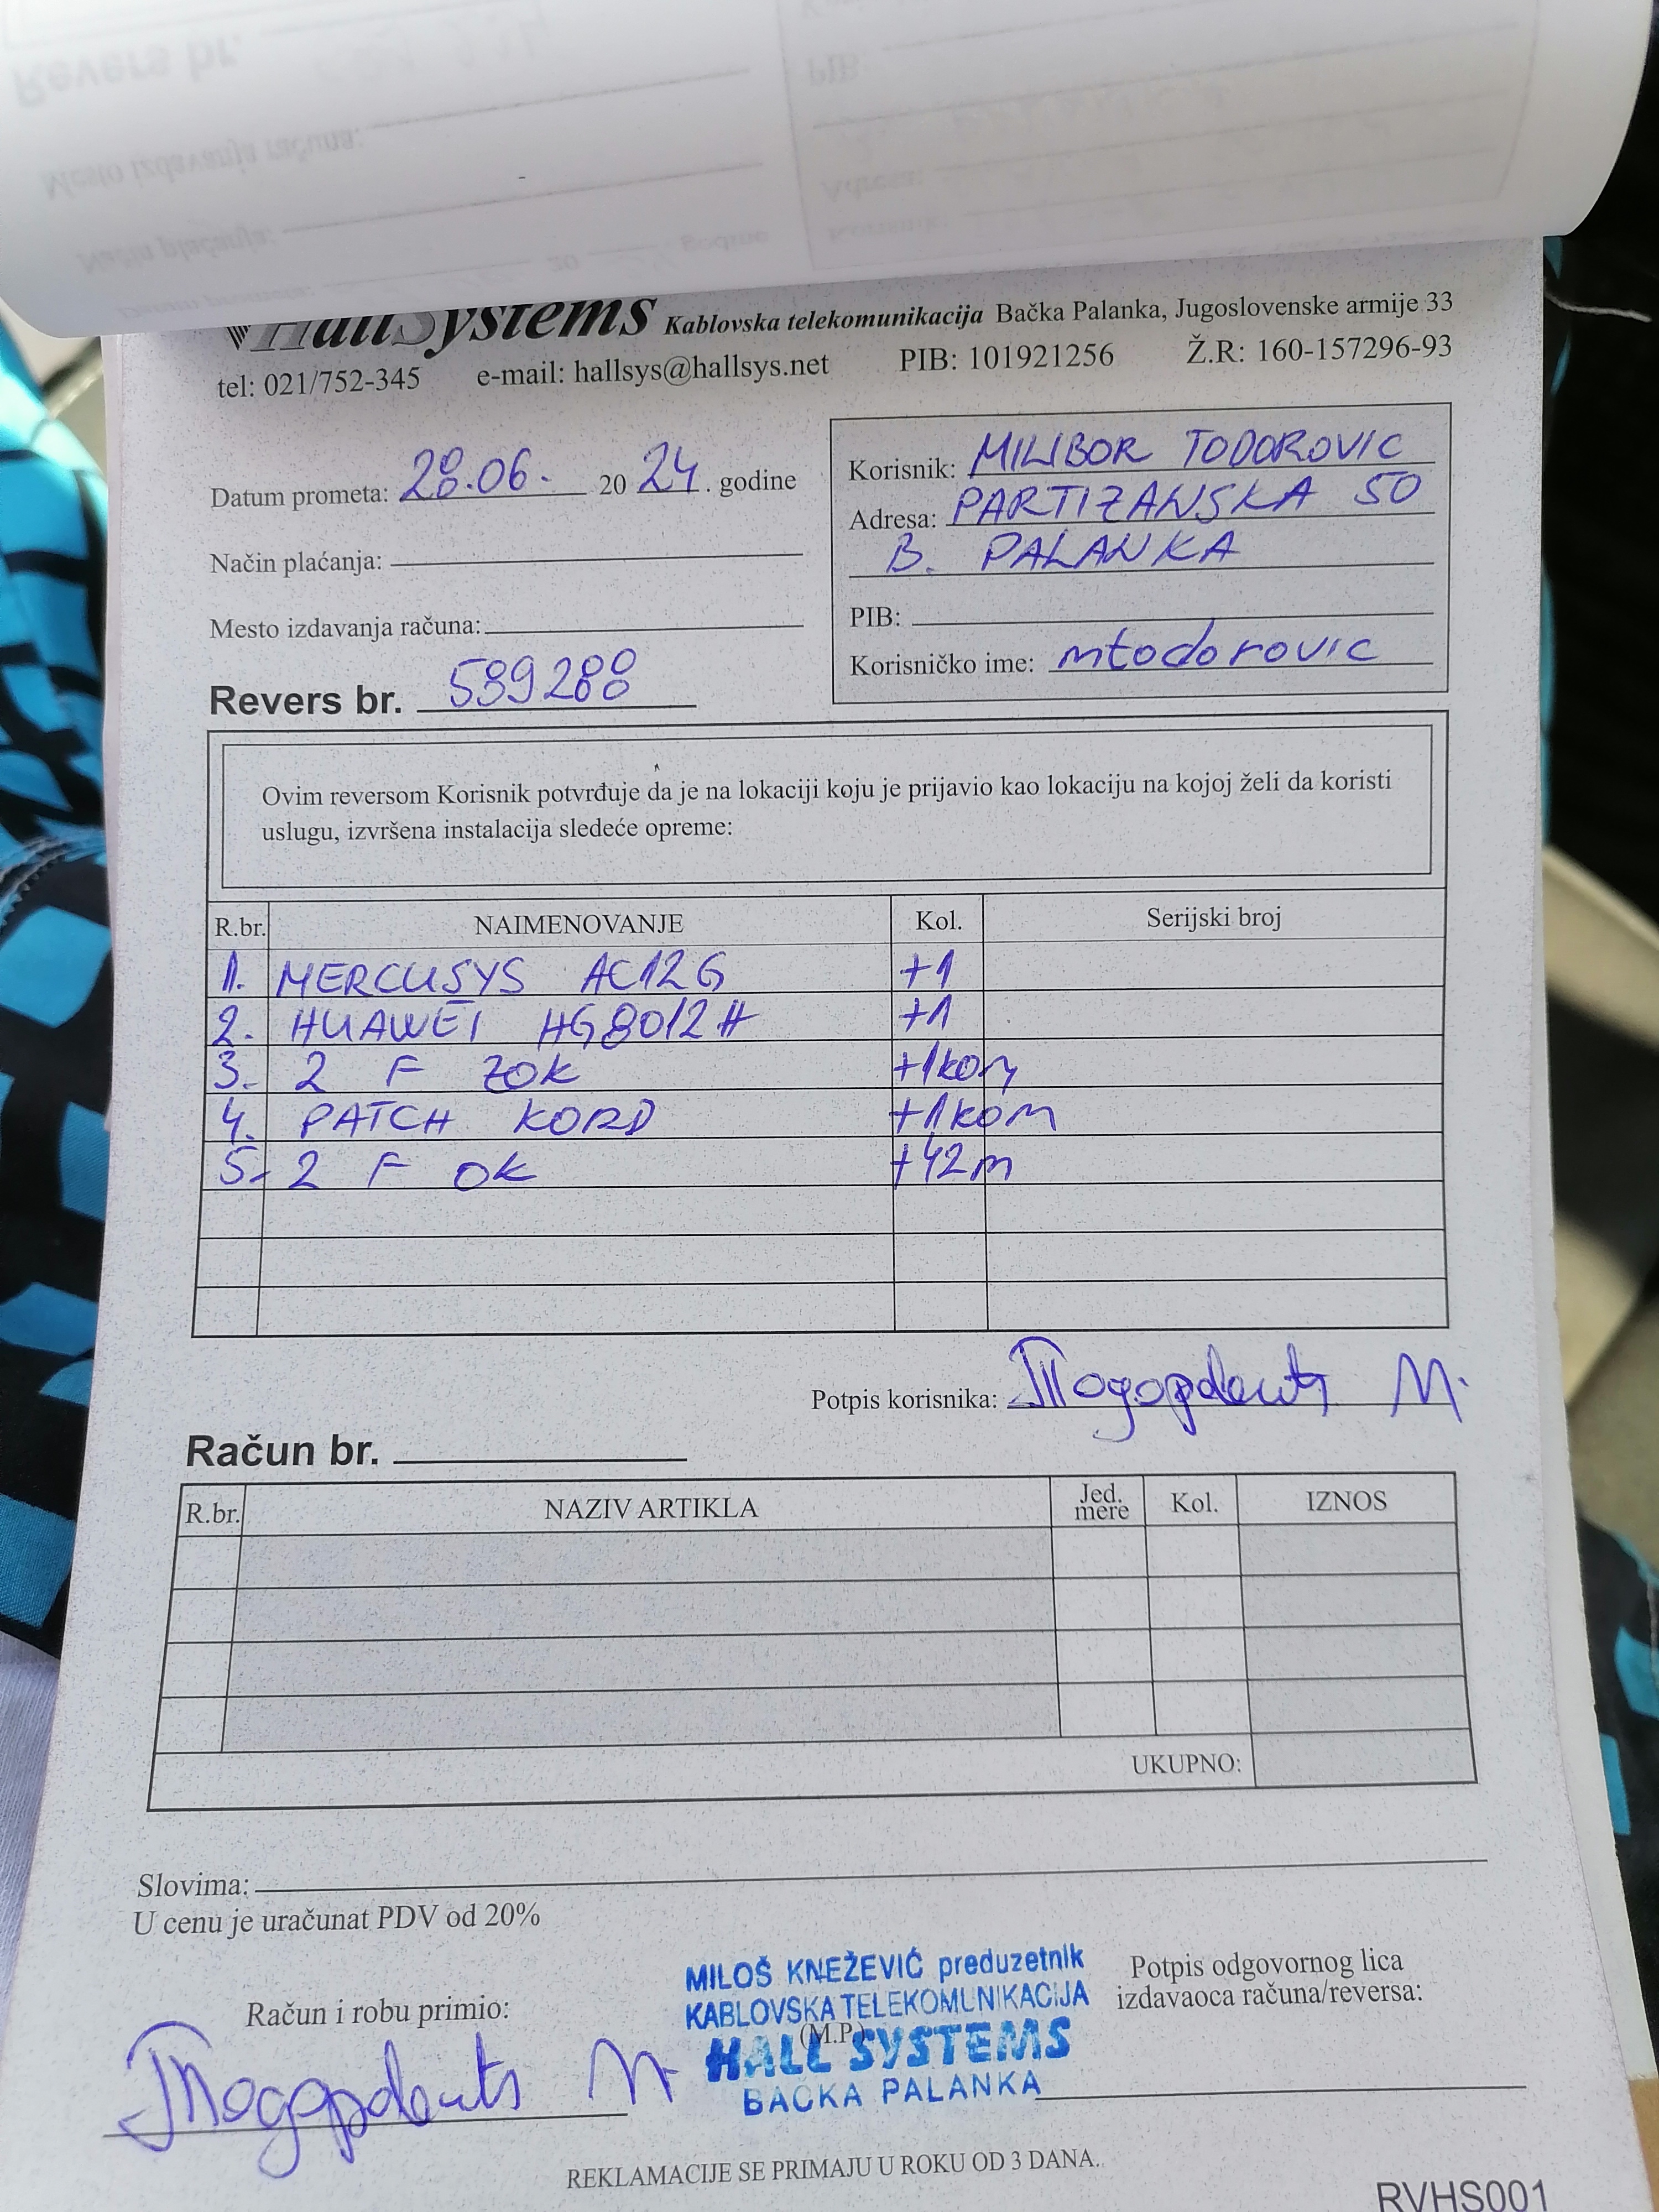 HallSystems Kablovska telekomunikacija Bačka Palanka, Jugoslovenske armije 33
tel: 021/752-345 e-mail: hallsys@hallsys.net PIB: 101921256 Ž.R: 160-157296-93
Datum prometa: 28.06. 2024. godine
Način plaćanja:
Mesto izdavanja računa:
Revers br. 539288
Korisnik: MILIBOR TODOROVIC
Adresa: PARTIZANSKA 50
B. PALANKA
PIB:
Korisničko ime: mtodorovic
Ovim reversom Korisnik potvrđuje da je na lokaciji koju je prijavio kao lokaciju na kojoj želi da koristi
uslugu, izvršena instalacija sledeće opreme:
R.br. NAIMENOVANJE Kol. Serijski broj
1. MERCUSYS AC12G +1
2. HUAWEI HG8012H +1
3. 2 F ZOK +1kom
4. PATCH KORD +1kom
5. 2 F OK +42m
Potpis korisnika: M.
Račun br.
R.br. NAZIV ARTIKLA Jed. mere Kol. IZNOS
UKUPNO:
Slovima:
U cenu je uračunat PDV od 20%
Račun i robu primio:
MILOŠ KNEŽEVIĆ preduzetnik
KABLOVSKA TELEKOMUNIKACIJA
(M.P.)
HALL SYSTEMS
BAČKA PALANKA
Potpis odgovornog lica
izdavaoca računa/reversa:
REKLAMACIJE SE PRIMAJU U ROKU OD 3 DANA.
RVHS001